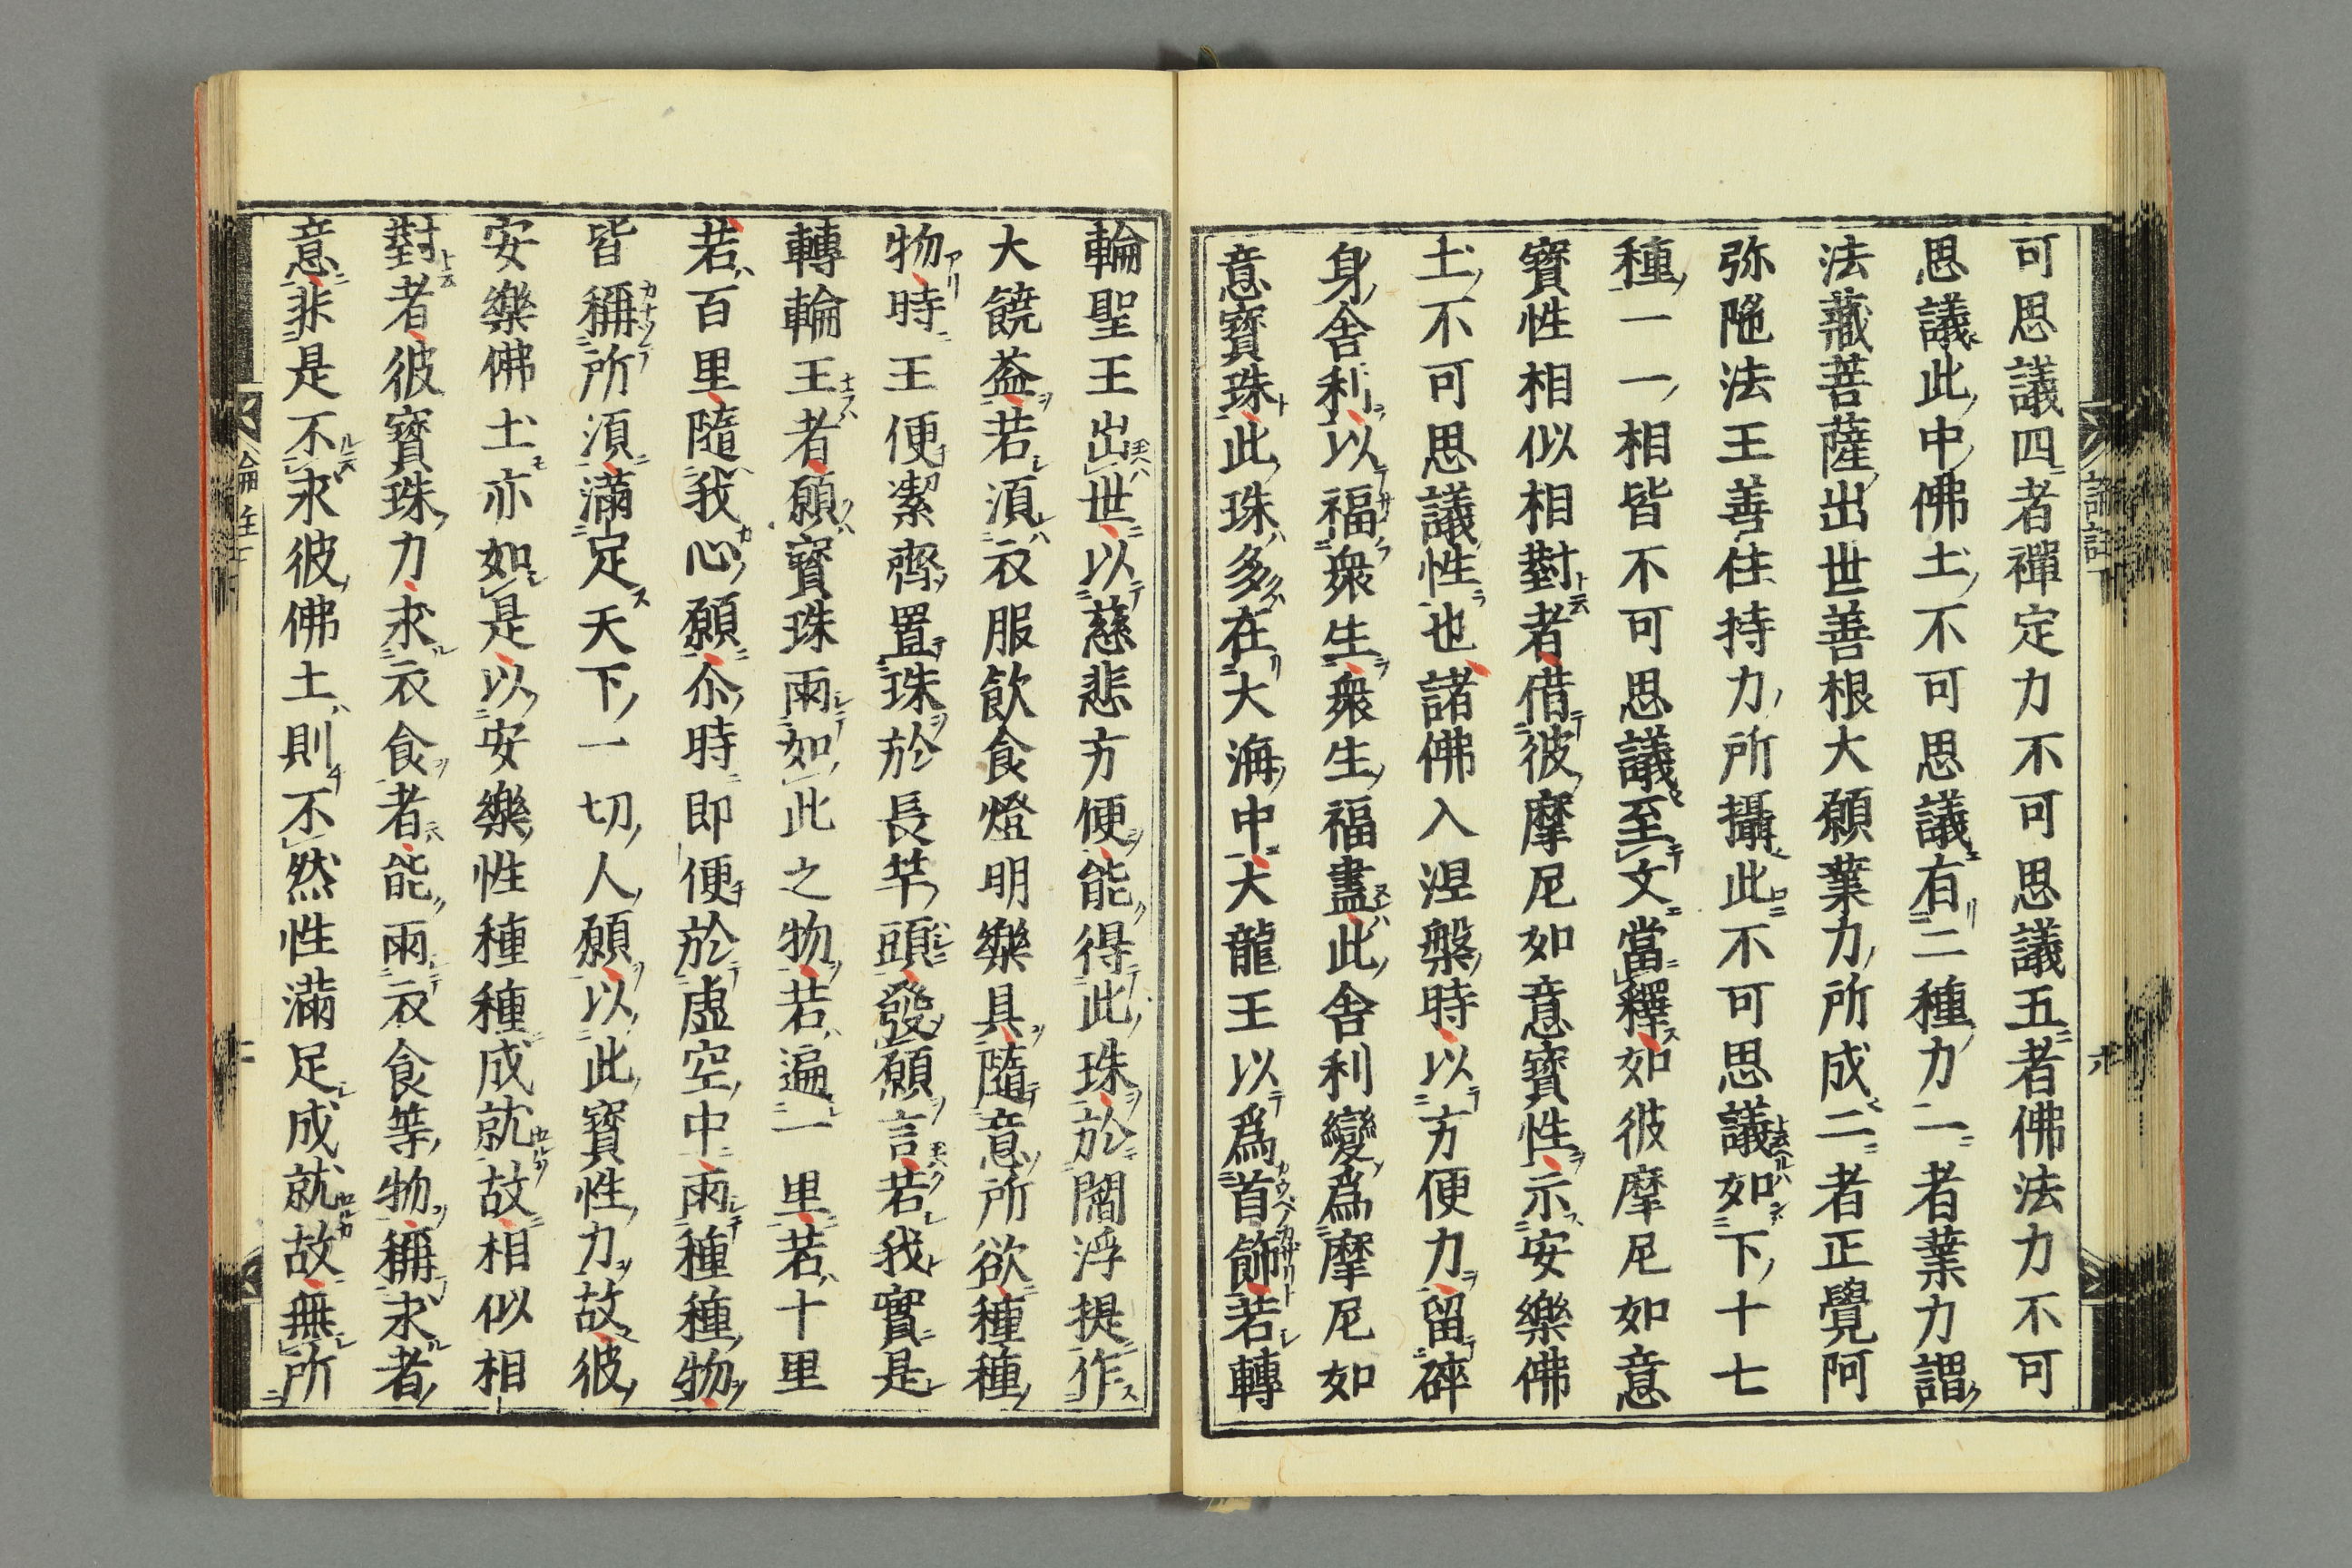 可思議四者禪定力不可思議五者佛法力不可
思議此中佛土不可思議有二種力一者業力謂
法藏菩薩出世善根大願業力所成二者正覺阿
弥陁法王善住持力所攝此不可思議如下十七
種一一相皆不可思議至文當釋如彼摩尼如意
寶性相似相對者借彼摩尼如意寶性示安樂佛
土不可思議性也諸佛入涅槃時以方便力留碎
身舍利以福衆生衆生福盡此舍利變爲摩尼如
意寶珠此珠多在大海中大龍王以爲首飾若轉
輪聖王出世以慈悲方便能得此珠於閻浮提作
大饒益若湏衣服飲食燈明樂具隨意所欲種種
物時王便潔齋置珠於長竿頭發願言若我實是
轉輪王者願寶珠雨如此之物若遍一里若十里
若百里隨我心願尒時即便於虚空中雨種種物
皆稱所湏滿足天下一切人願以此寶性力故彼
安樂佛土亦如是以安樂性種種成就故相似相
對者彼寶珠力求衣食者能雨衣食等物稱求者
意非是不求彼佛土則不然性滿足成就故無所